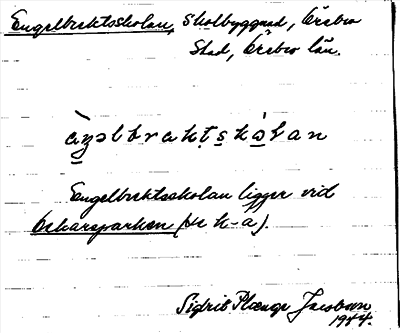 Engelbrektsskolan, skolbyggnad, Örebro
Stad, Örebro län.
Engelbrektsskolan ligger vid
Oskarsparken (se k-a).
Sigrid Plænge Jacobson
1944.